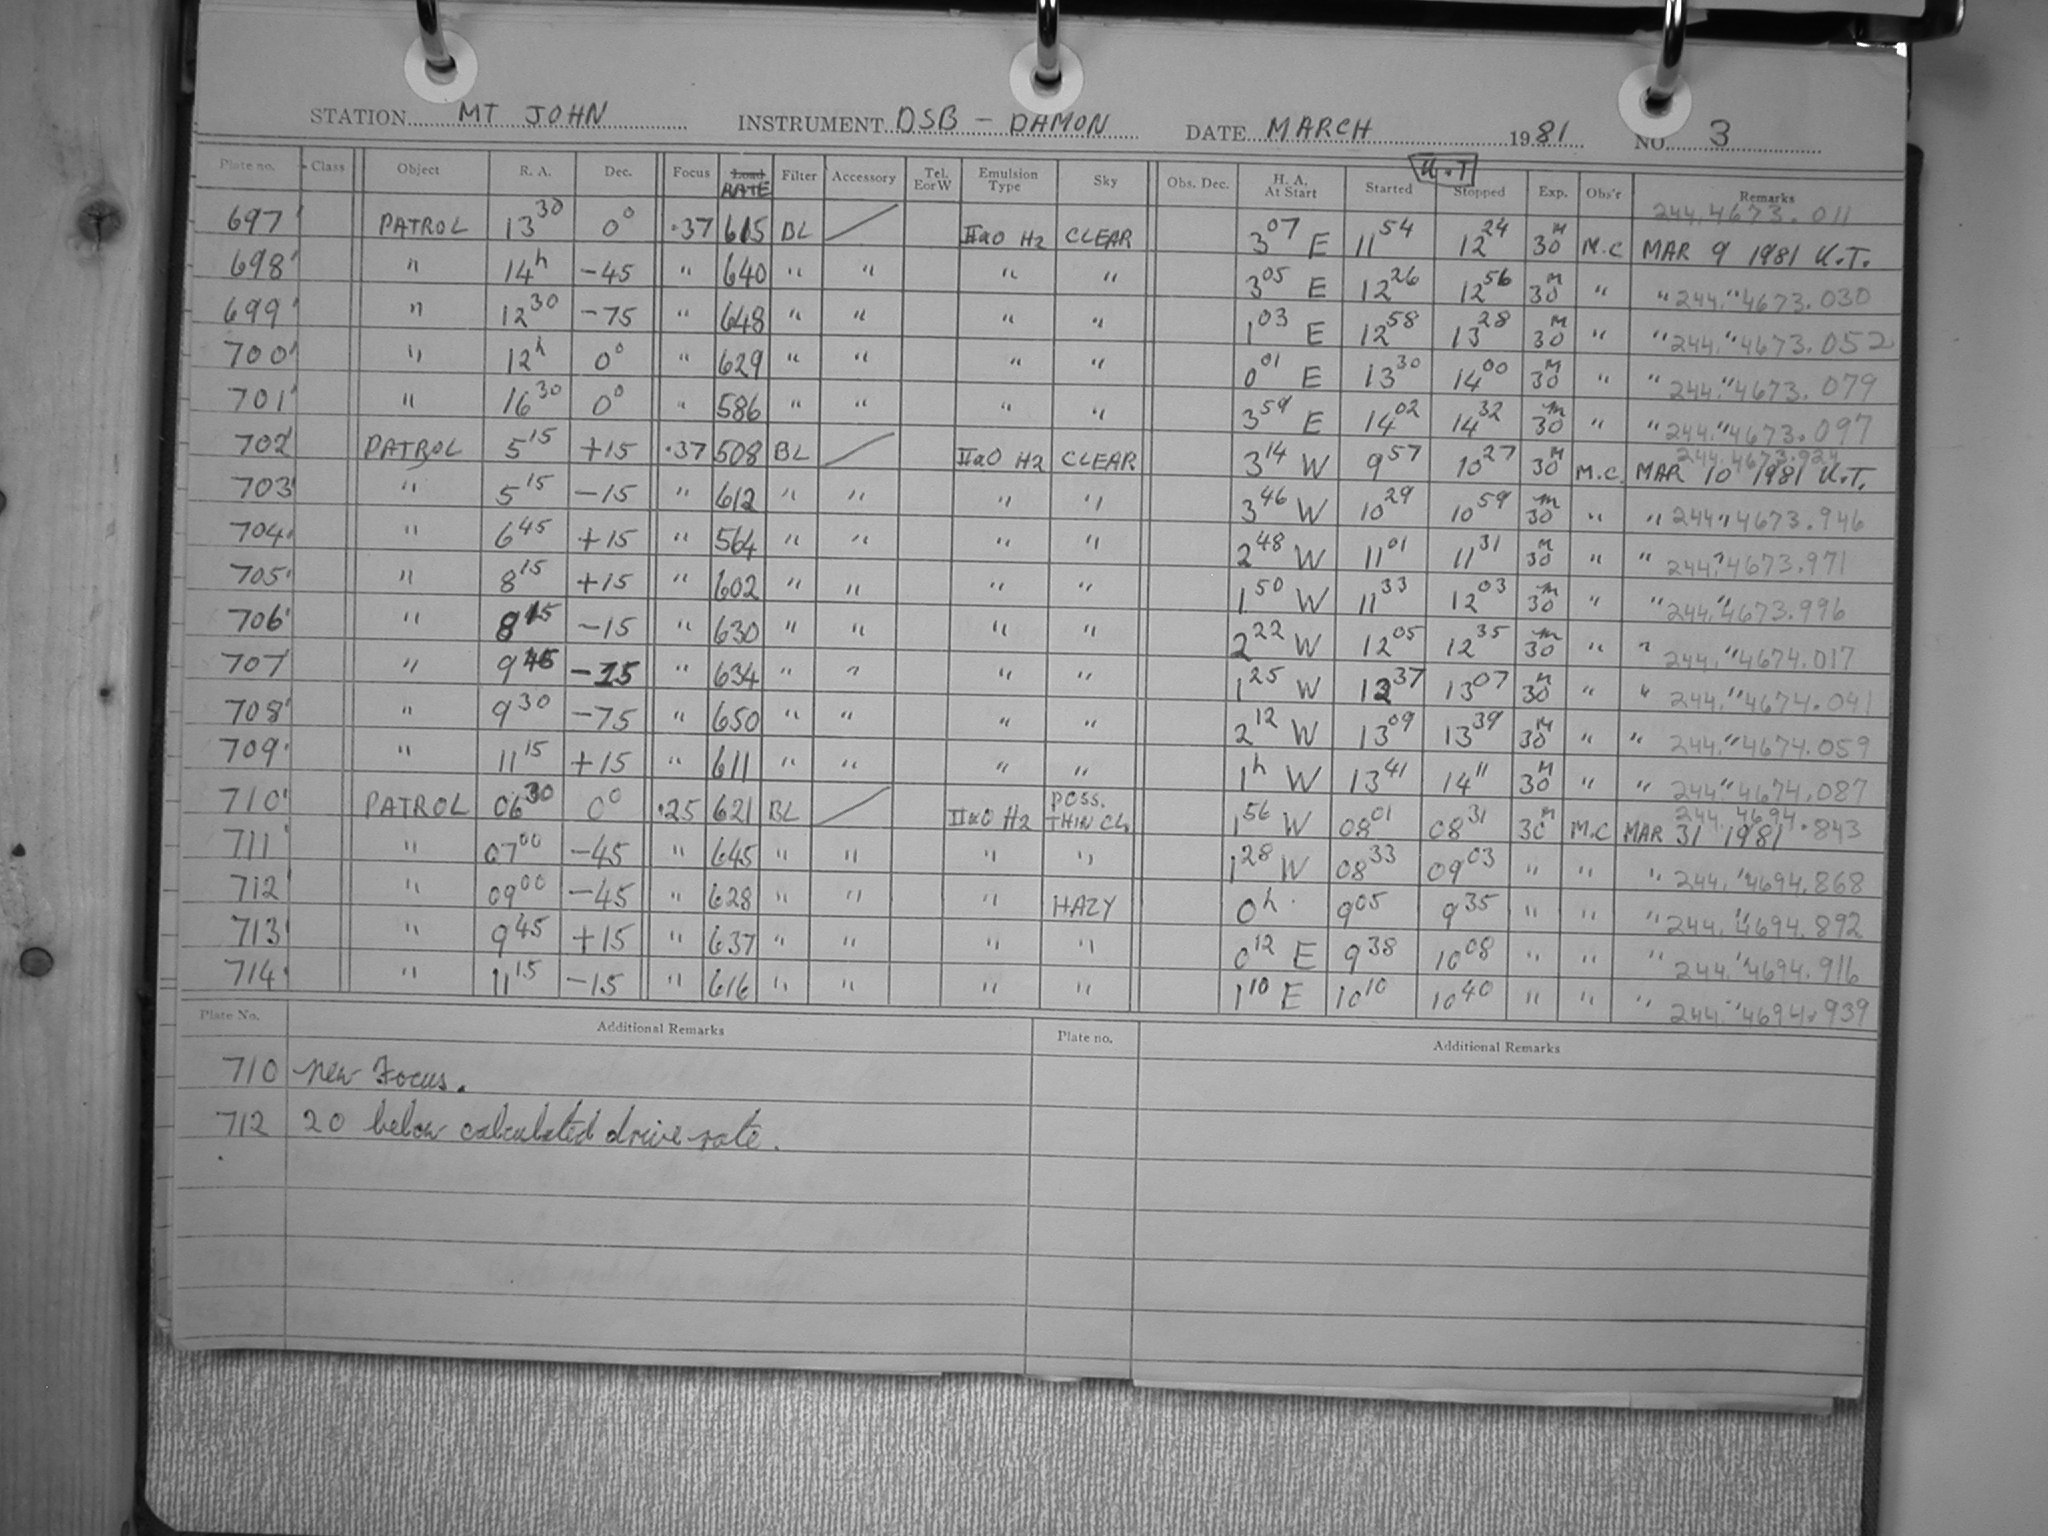 STATION MT JOHN INSTRUMENT DSB - DAMON DATE MARCH 1981 NO. 3
Plate no. Class Object R. A. Dec. Focus Load RATE Filter Accessory Tel. E or W Emulsion Type Sky Obs. Dec. H. A. At Start U.T Started Stopped Exp. Obs'r Remarks
244.4673.011
697 PATROL 13 30 0° .37 615 BL IIaO H2 CLEAR 3 07 E 11 54 12 24 30 M M.C MAR 9 1981 U.T.
698 " 14 h -45 " 640 " " " " 3 05 E 12 26 12 56 30 M " " 244."4673.030
699 " 12 30 -75 " 648 " " " " 1 03 E 12 58 13 28 30 M " " 244."4673.052
700 " 12 h 0° " 629 " " " " 0 01 E 13 30 14 00 30 M " " 244."4673.079
701 " 16 30 0° " 586 " " " " 3 59 E 14 02 14 32 30 m " " 244."4673.097
244.4673.924
702 PATROL 5 15 +15 .37 508 BL IIaO H2 CLEAR 3 14 W 9 57 10 27 30 M M.C. MAR 10 1981 U.T.
703 " 5 15 -15 " 612 " " " " 3 46 W 10 29 10 59 30 m " " 244."4673.946
704 " 6 45 +15 " 564 " " " " 2 48 W 11 01 11 31 30 m " " 244."4673.971
705 " 8 15 +15 " 602 " " " " 1 50 W 11 33 12 03 30 m " " 244."4673.996
706 " 8 15 -15 " 630 " " " " 2 22 W 12 05 12 35 30 m " " 244."4674.017
707 " 9 45 -15 " 634 " " " " 1 25 W 12 37 13 07 30 M " " 244."4674.041
708 " 9 30 -75 " 650 " " " " 2 12 W 13 09 13 39 30 M " " 244."4674.059
709 " 11 15 +15 " 611 " " " " 1 h W 13 41 14 11 30 M " " 244."4674.087
710 PATROL 06 30 0° .25 621 BL IIaO H2 POSS. THIN CL. 1 56 W 08 01 08 31 30 M M.C MAR 31 1981 244.4694.843
711 " 07 00 -45 " 645 " " " " 1 28 W 08 33 09 03 " " " 244."4694.868
712 " 09 00 -45 " 628 " " " HAZY 0 h 9 05 9 35 " " " 244."4694.892
713 " 9 45 +15 " 637 " " " " 0 12 E 9 38 10 08 " " " 244."4694.916
714 " 11 15 -15 " 616 " " " " 1 10 E 10 10 10 40 " " " 244."4694.939
Plate No. Additional Remarks Plate no. Additional Remarks
710 New Focus.
712 20 below calculated drive rate.